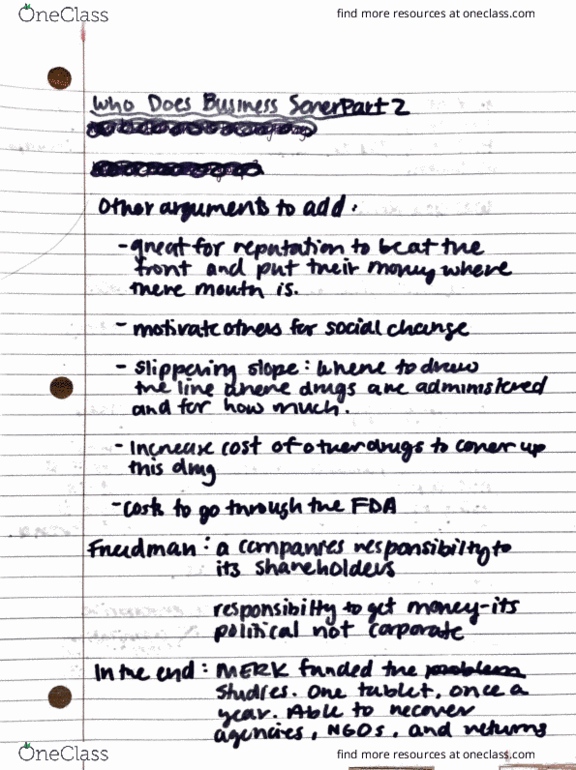 OneClass
find more resources at oneclass.com
Who Does Business Serve Part 2
Other arguments to add:
- great for reputation to beat the
front and put their money where
there mouth is.
- motivate others for social change
- slippering slope: where to draw
the line where drugs are administered
and for how much.
- Increase cost of other drugs to cover up
this drug
- costs to go through the FDA
Friedman: a companies responsibility to
its shareholders
responsibility to get money - its
political not corporate
In the end: MERK funded the problem
studies. One tablet, once a
year. Able to recover
agencies, NGOs, and returns
OneClass
find more resources at oneclass.com